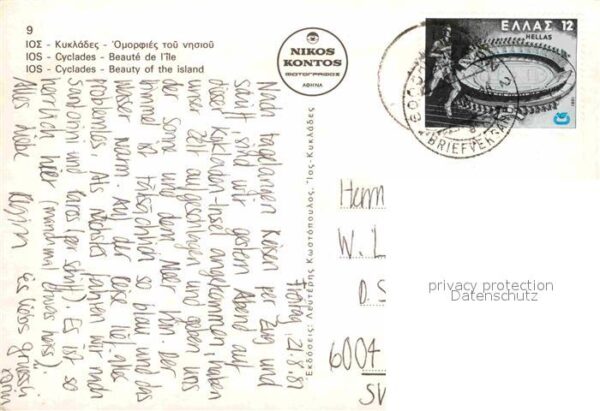 9
ΙΟΣ - Κυκλάδες - Ὀμορφιές τοῦ νησιοῦ
IOS - Cyclades - Beauté de l'île
IOS - Cyclades - Beauty of the island
NIKOS
KONTOS
ΦΩΤΟΓΡΑΦΟΣ
ΑΘΗΝΑ
ΕΛΛΑΣ 12
HELLAS
Ἐκδόσεις: Λευτέρης Κωστόπουλος, Ἴος-Κυκλάδες
Freitag, 21.8.81
Nach tagelangen Reisen per Zug und
Schiff, sind wir gestern Abend auf
dieser Kykladen-Insel angekommen, haben
unser Zelt aufgeschlagen und geben uns
der Sonne und dem Meer hin. Der
Himmel ist tatsächlich so blau und das
Wasser warm. Auf der Reise lief alles
problemlos. Als Nächstes fahren wir nach
Santorini und Paros (per Schiff). Es ist so
herrlich hier (manchmal etwas heiss).
Alles Liebe
Es liebs Grüessli
Herrn
W. L
D. S
6004
SV
privacy protection
Datenschutz